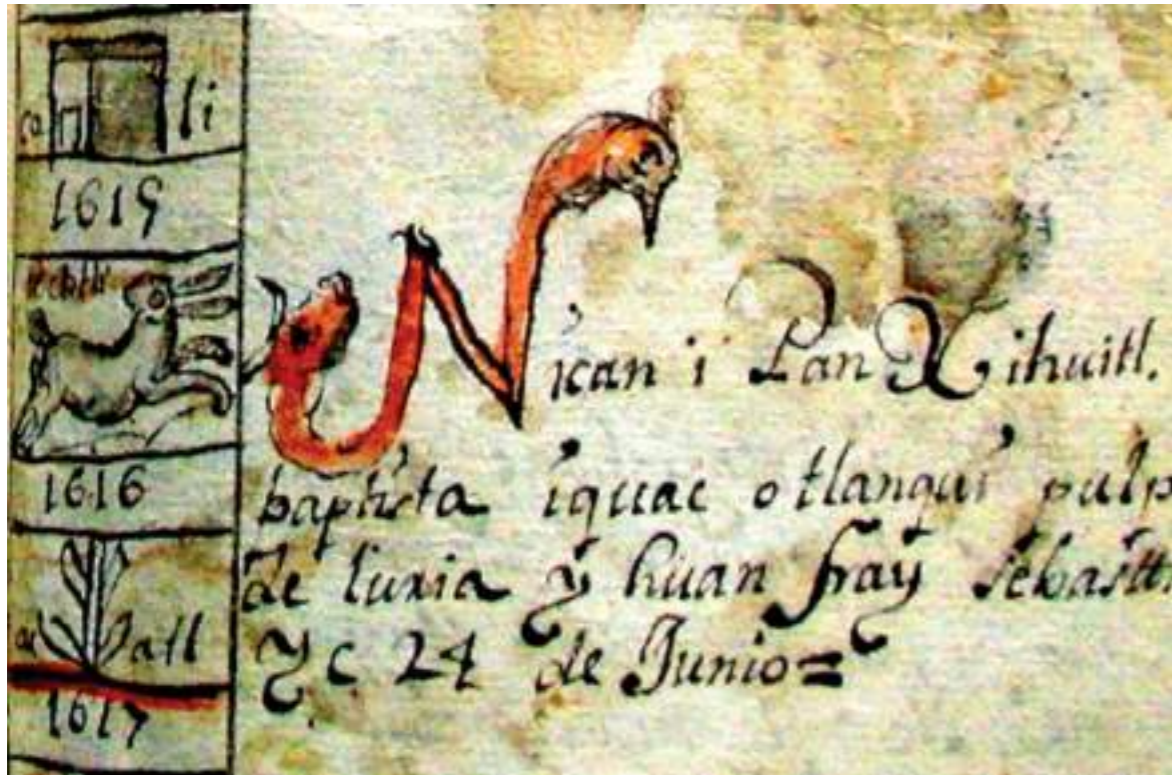 ca li
1615
tochtli
1616
acatl
1617
Nican i Pan Xihuitl.
baptista iquac otlanqui pulp
de luxia y huan fray sebastt.
Yc 24 de Junio=